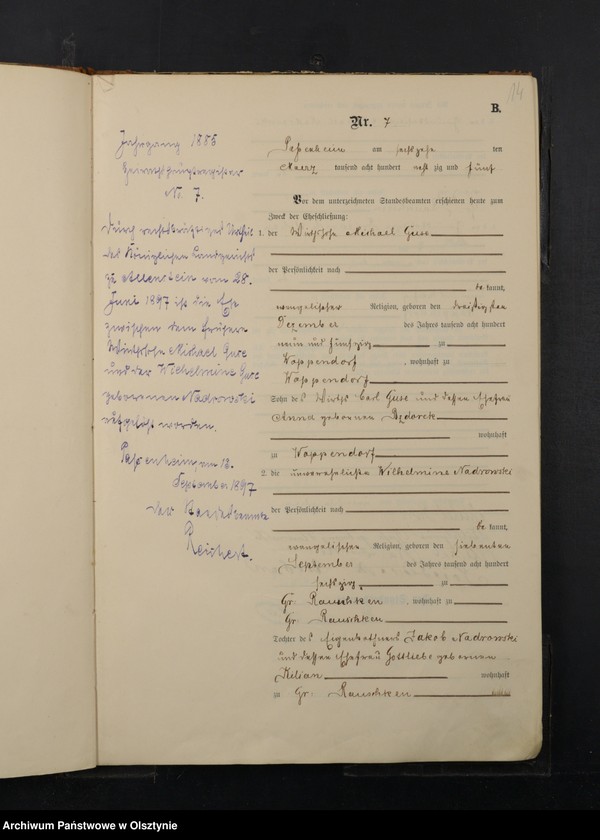 14
B.
Nr. 7
Passenheim am sechszehn den
Maerz tausend acht hundert acht zig und fünf
Vor dem unterzeichneten Standesbeamten erschienen heute zum
Zweck der Eheschließung:
1. der Wirthssohn Michael Guse
der Persönlichkeit nach
be kannt,
evangelischer Religion, geboren den dreißigsten
Dezember des Jahres tausend acht hundert
neun und fünfzig zu
Wappendorf, wohnhaft zu
Wappendorf
Sohn des Wirths Carl Guse und dessen Ehefrau
Anna geborenen
wohnhaft
zu Wappendorf
2. die unverehelichte Wilhelmine Nadrowski
der Persönlichkeit nach
be kannt,
evangelischer Religion, geboren den siebenten
September des Jahres tausend acht hundert
sechszig zu
Gr: Rauschken, wohnhaft zu
Gr: Rauschken
Tochter des Eigenkäthners Jakob Nadrowski
und dessen Ehefrau Gottliebe geborenen
Kilian wohnhaft
zu Gr: Rauschken
Jahrgang 1885
Heirathshauptregister
No. 7.
Durch rechtskräftiges Urtheil
des Königlichen Landgerichts
zu Allenstein vom 28.
Juni 1897 ist die Ehe
zwischen dem früheren
Wirthssohn Michael Guse
und der Wilhelmine Guse
geborenen Nadrowski
aufgelöst worden.
Passenheim am 18.
September 1897
Der Standesbeamte
Reichert.
Archiwum Państwowe w Olsztynie